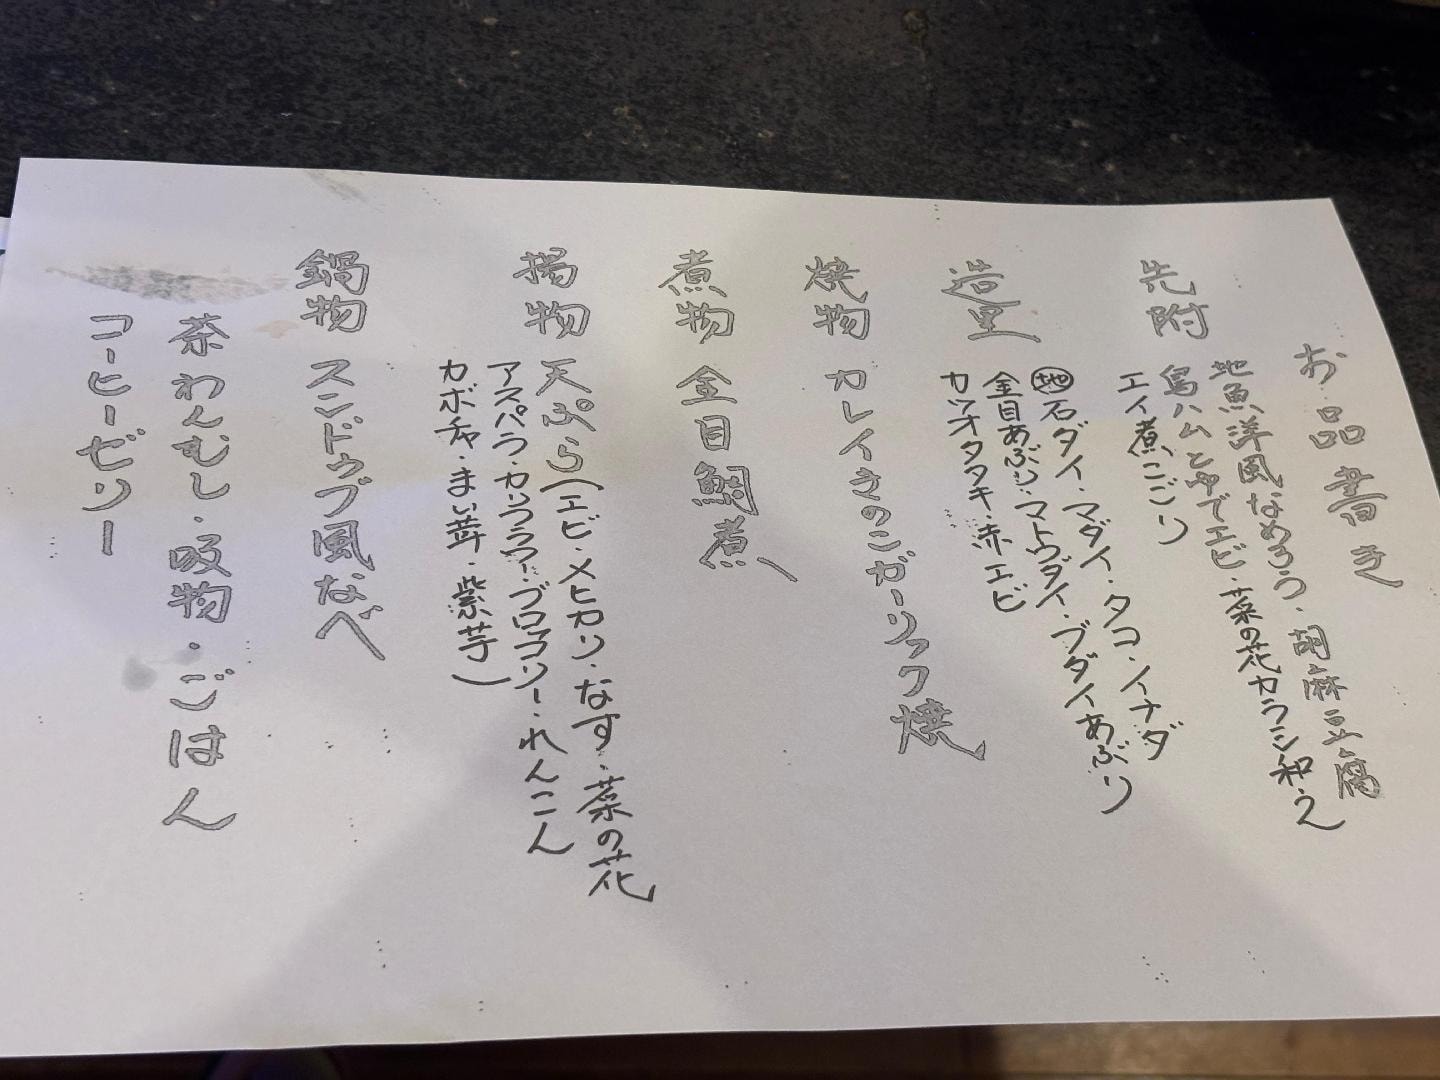 お品書き
先附
地魚洋風なめろう・胡麻豆腐
鳥ハムとゆでエビ・菜の花カラシ和え
エイ煮こごり
造里
㊍石ダイ・マダイ・タコ・イナダ
金目あぶり・マトウダイ・ブダイあぶり
カツオタタキ・赤エビ
焼物 カレイきのこガーリック焼
煮物 金目鯛煮
揚物 天ぷら(エビ・メヒカリ・なす・菜の花
アスパラ・カリフラワー・ブロッコリー・れんこん
カボチャ・まい茸・紫芋)
鍋物 スンドゥブ風なべ
茶わんむし・吸物・ごはん
コーヒーゼリー